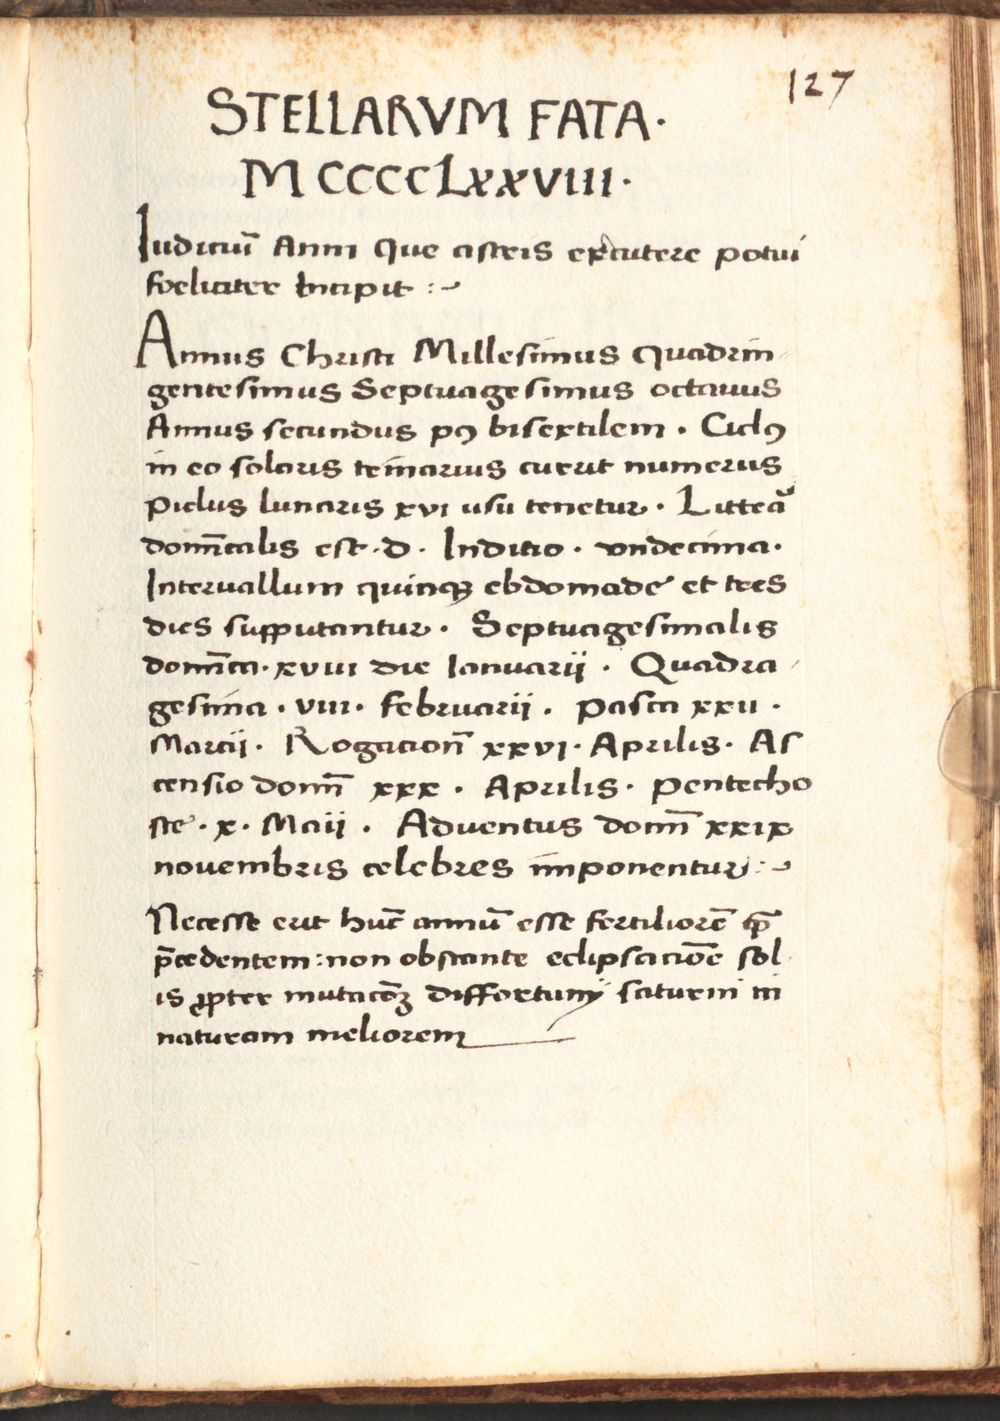 127
STELLARVM FATA·
MCCCCLxxVIII·
Iudiciū Anni Que astris excutere potui
foeliciter Incipit :~
Annus Christi Millesimus quadrin
gentesimus Septuagesimus octauus
Annus secundus pꝰ bisextilem · Ciclꝰ
in eo solaris ternarius curut numerus
Piclus lunaris xvi usu tenetur · Litteā
domīcalis est · d · Inditio · vndecima ·
Interuallum quinqꝫ ebdomade et tres
dies supputantur · Septuagesimalis
domīca · xviii die Ianuarii · Quadra
gesima · viii · februarii · pasca xxii ·
Marcii · Rogacion̄ xxvi · Aprilis · As
censio domī xxx · Aprilis · pentecho
ste · x · Maii · Aduentus domī xxix
nouembris celebres imponentur :~
Necesse erit hūc annū esse fertiliorē qᷓ
p̄cedentem : non obstante eclipsaciōe sol
is ꝓpter mutacōꝫ diffortunij saturni in
naturam meliorem